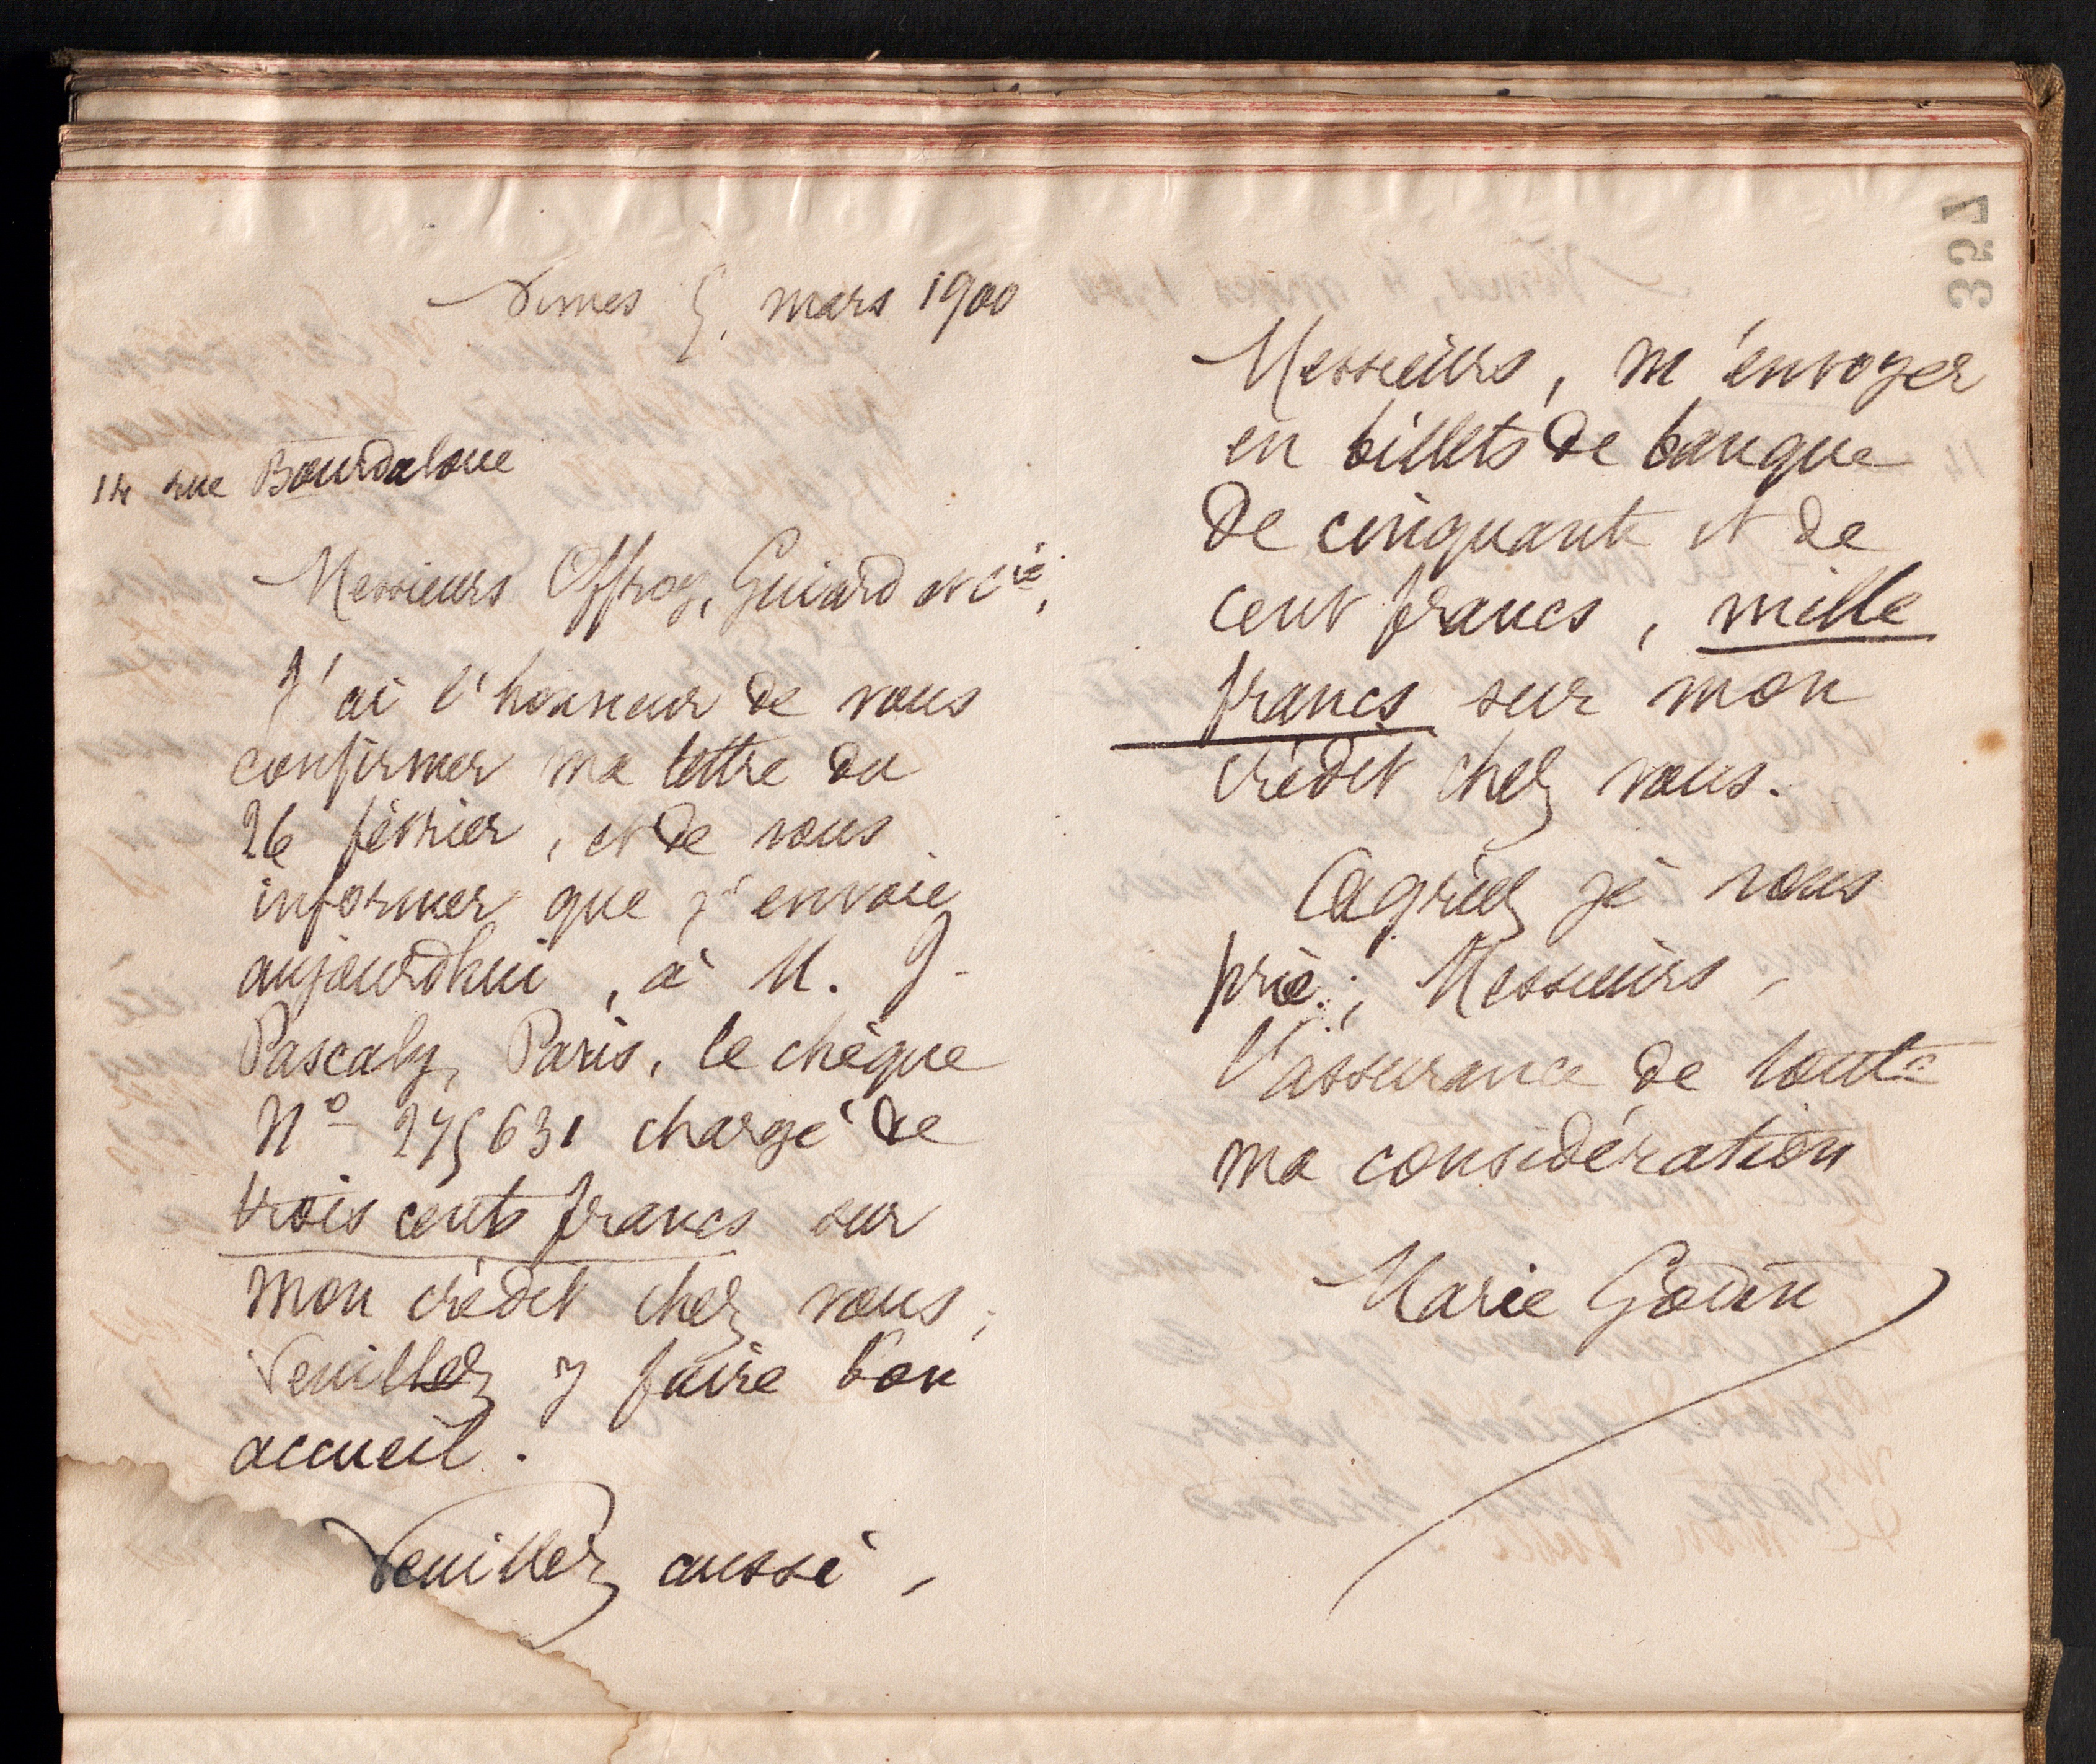 Nimes 5. mars 1900
14 rue Bourdaloue
Messieurs Offroy, Guiard et Cie,
J'ai l'honneur de vous
confirmer ma lettre du
26 février, et de vous
informer que j'envoie
aujourdhui, à M. J.
Pascaly, Paris, le chèque
No 275631 chargé de
trois cents francs sur
mon crédit chez vous;
Veuillez y faire bon
accueil.
Veuillez aussi,
357
Messieurs, m'envoyer
en billets de banque
de cinquante et de
cent francs, mille
francs sur mon
crédit chez vous.
Agréez je vous
prie, Messieurs,
l'assurance de toute
ma considération
Marie Godin